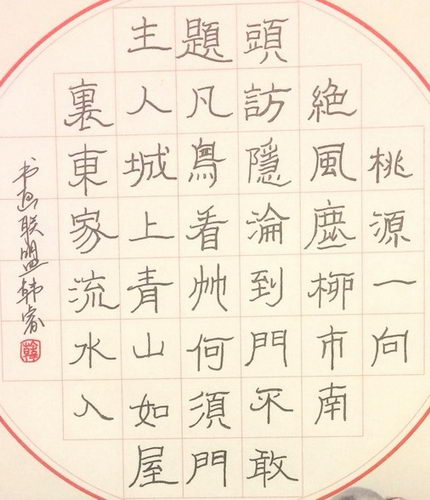 桃源一向
絶風塵柳市南
頭訪隱淪到門不敢
題凡鳥看竹何須門
主人城上青山如屋
裏東家流水入
书画联盟韩睿